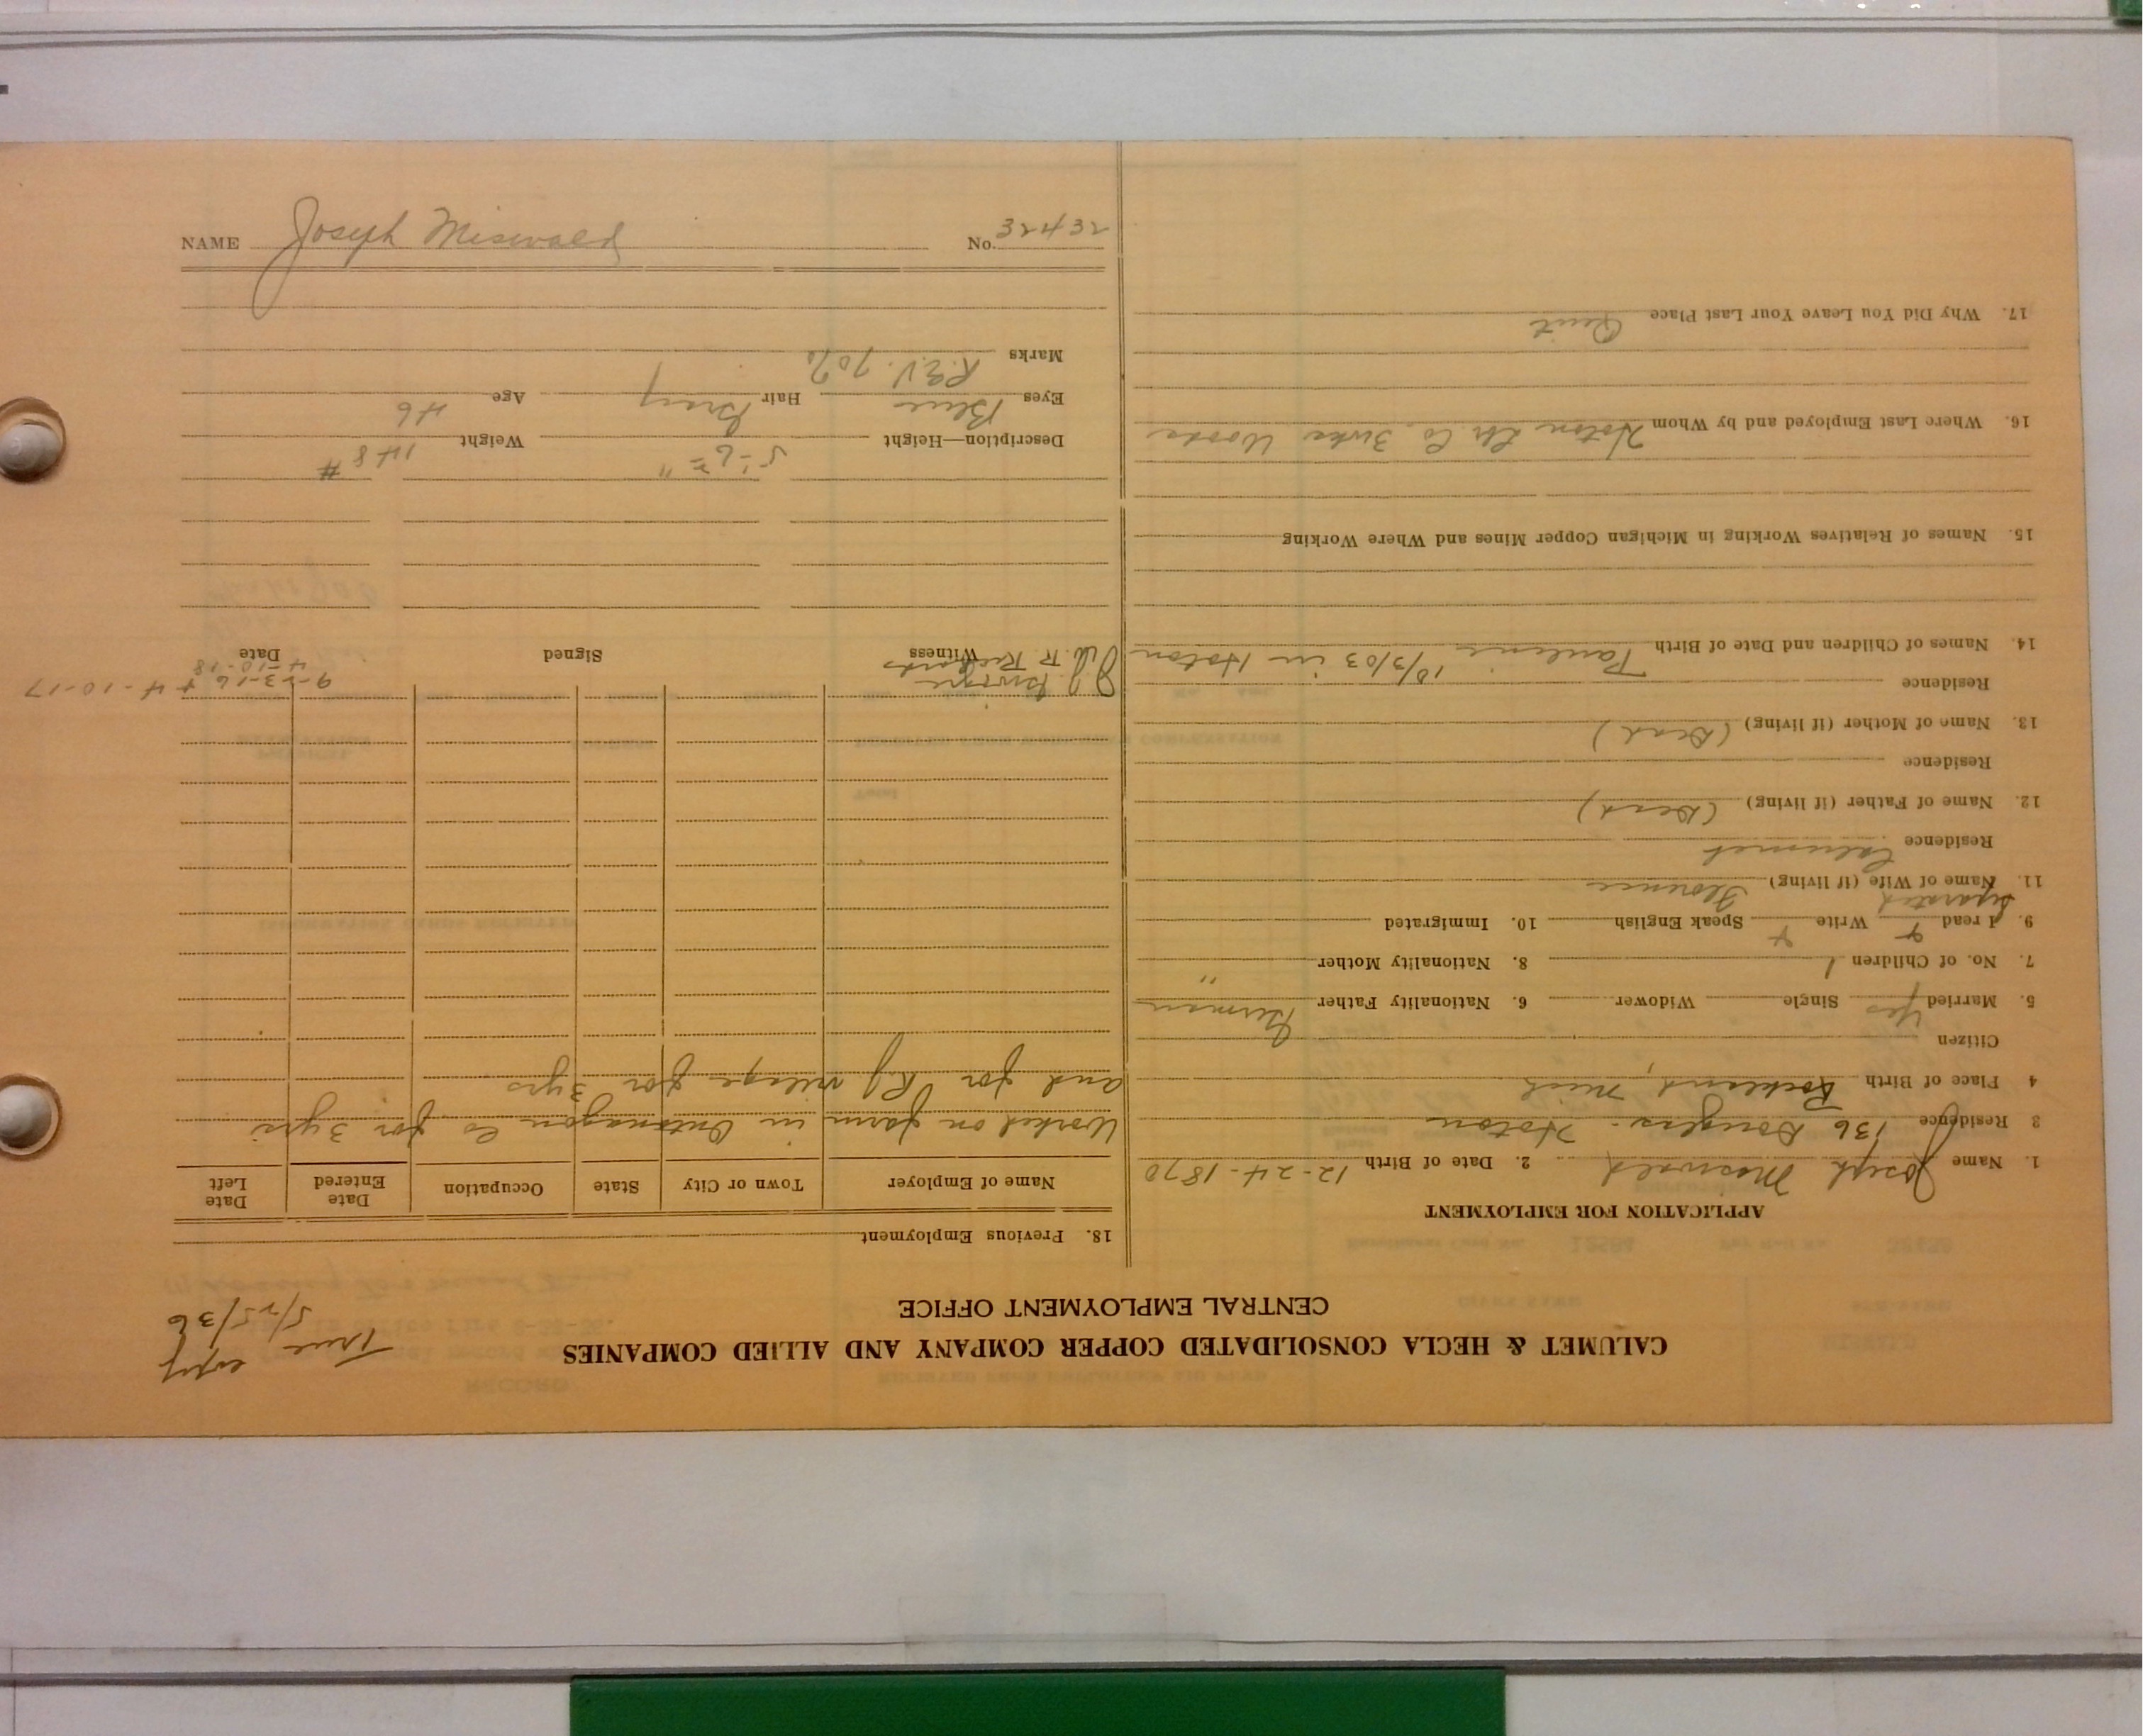 CALUMET & HECLA CONSOLIDATED COPPER COMPANY AND ALLIED COMPANIES
CENTRAL EMPLOYMENT OFFICE
True copy
5/25/36
APPLICATION FOR EMPLOYMENT
1. Name Joseph Miswald 2. Date of Birth 12-24-1870
3 Residence 136 Douglas - Hoton
4 Place of Birth Rockland, Mich
Citizen
5. Married Yes Single Widower 6. Nationality Father German
7. No. of Children 1 8. Nationality Mother "
9. I read + Write + Speak English 10. Immigrated
Separated
11. Name of Wife (if living) Florence
Residence Calumet
12. Name of Father (if living) (Dead)
Residence
13. Name of Mother (if living) (Dead)
Residence
14. Names of Children and Date of Birth Pauline 10/3/03 in Hoton
15. Names of Relatives Working in Michigan Copper Mines and Where Working
16. Where Last Employed and by Whom Hoton Co. Woods
17. Why Did You Leave Your Last Place Quit
18. Previous Employment
Name of Employer Town or City State Occupation Date Entered Date Left
Worked on farm in Ontonagon Co for 3yrs
and for for 3yrs
9-23-16 + 4-10-17
4-10-18
Witness Signed Date
Description—Height 5'-6" Weight 148#
Eyes Blue Hair Gray Age 46
Marks R.E.V. 70%
NAME Joseph Miswald No. 32432